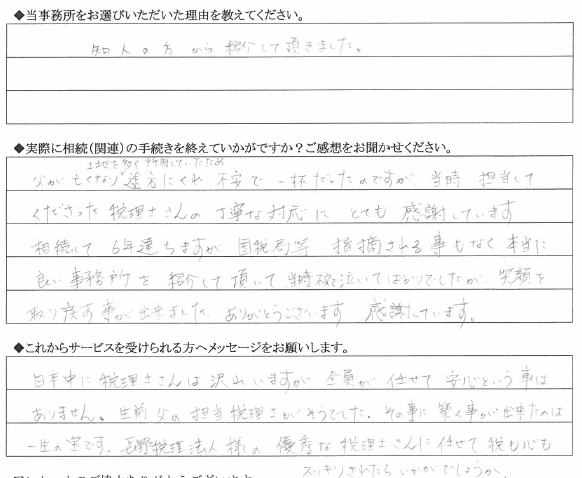 ◆当事務所をお選びいただいた理由を教えてください。
知人の方から紹介して頂きました。
◆実際に相続(関連)の手続きを終えていかがですか？ご感想をお聞かせください。
土地を多く所有していたため
父が亡くなり途方にくれ 不安で一杯だったのですが、当時 担当して
くださった税理士さんの丁寧な対応に とても 感謝しています
相続して 6年達ちますが 国税局等 指摘される事もなく本当に
良い事務所を 紹介して頂いて、当時 泣いてばかりでしたが、笑顔を
取り戻す事が出来ました。ありがとうございます 感謝しています。
◆これからサービスを受けられる方へメッセージをお願いします。
日本中に税理士さんは沢山いますが 全員が 任せて 安心という事は
ありません。生前 父の担当税理士がそうでした。その事に 築く事が出来たのは
一生の宝です。長野税理法人様の 優秀な税理士さんに任せて 税も心も
スッキリされたらいかがでしょうか。